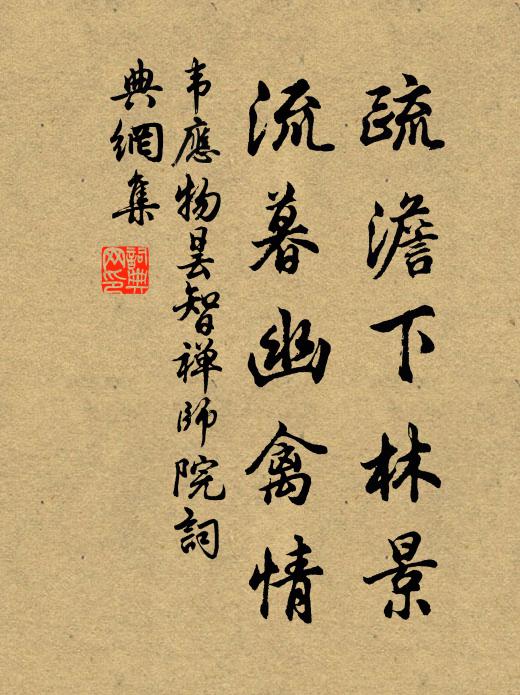 疏澹下林景
流暮幽禽情
韦應物昙智禅師院詞
典網集
詞典
网印